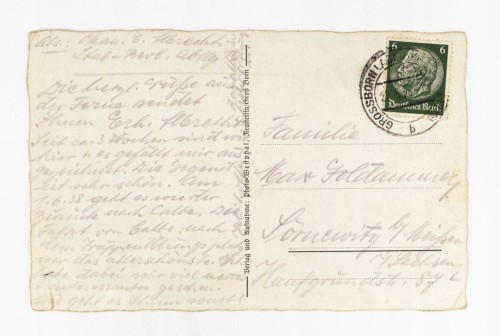 Abs.: Span. E. Albrecht
Stab-Beob. Abtlg.
Die herzl. Grüße aus
der Ferne sendet
Ihnen Erh. Albrecht.
Seit ca. 3 Wochen sind wir
hier & es gefällt mir aus-
gezeichnet. Die Gegend
ist sehr schön. Am
1.6.38 geht es wieder
zurück nach Calbe. Die
Fahrt von Calbe nach
dem Truppenübungsplatz
war das allerschönste. Ich
habe dabei sehr viel neues
gesehen.
Wie geht es Ihnen sonst?
Verlag und Aufnahme: Photo-Westphal, Neustettin, Groß Born
GROSSBORN
b
6 6
Deutsches Reich
Familie
Max Goldammer
Sörnewitz b/ Meißen
i/ Sachsen
Hanfgrundstr. 37